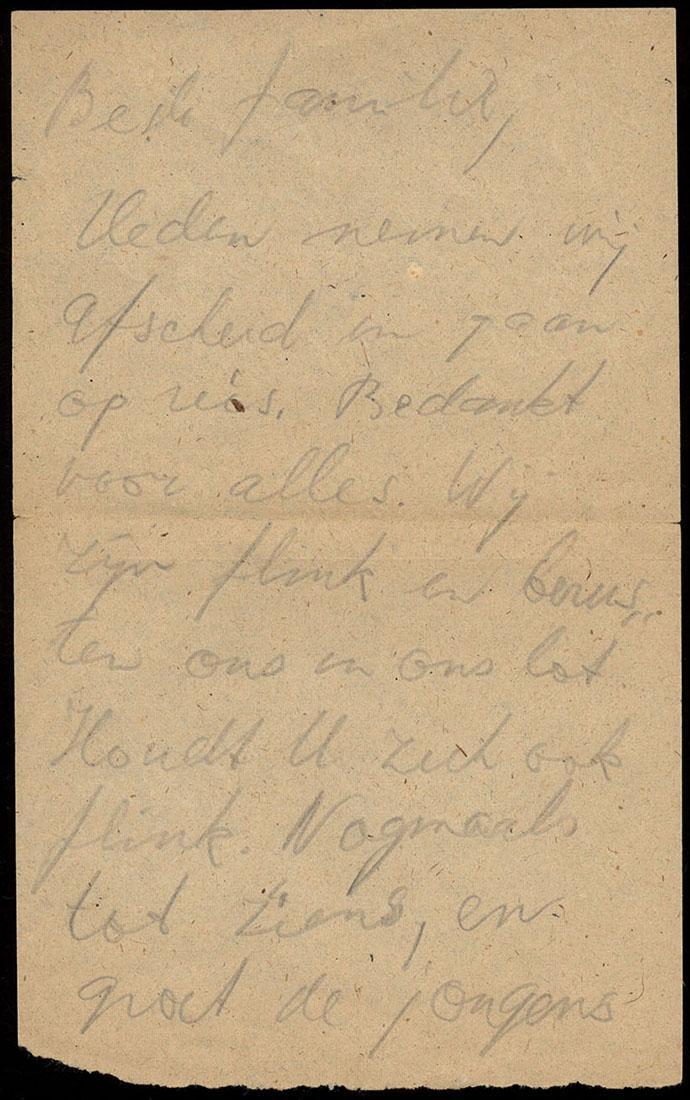 Beste familie,
Heden nemen wij
afscheid en gaan
op reis. Bedankt
voor alles. Wij
zijn flink en berus„
ten ons in ons lot
Houdt U zich ook
flink. Nogmaals
tot ziens, en
groet de jongens